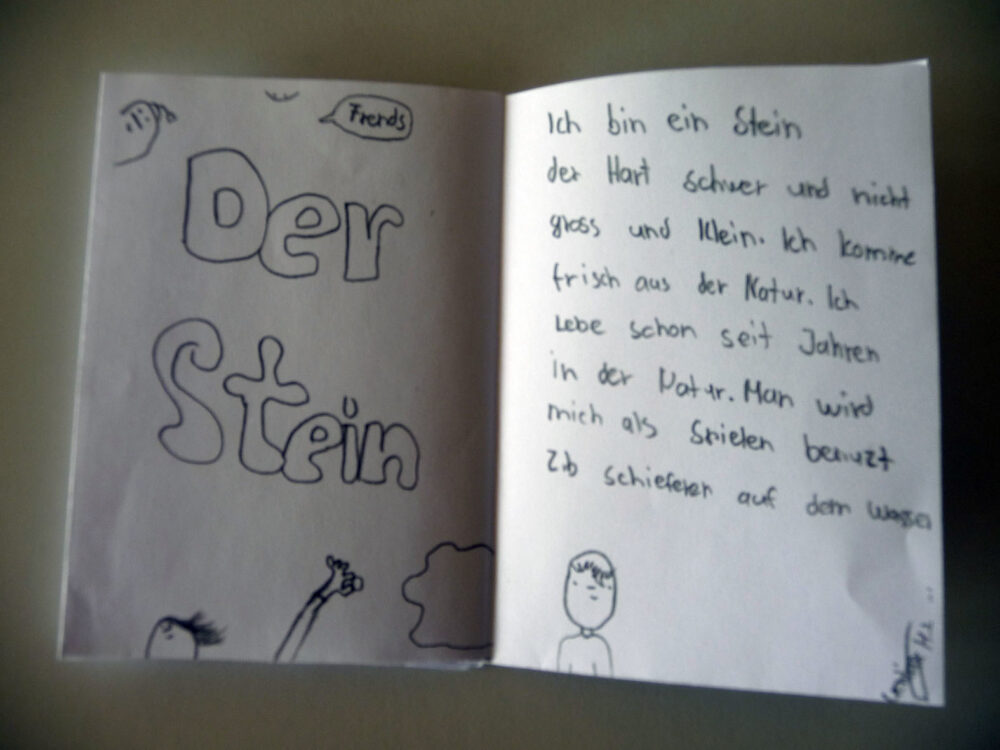 Frends
Der
Stein
Ich bin ein Stein
der Hart schwer und nicht
gross und Klein. Ich komme
frisch aus der Natur. Ich
Lebe schon seit Jahren
in der Natur. Man wird
mich als Spielen benuzt
z.b schieferen auf dem Wasser